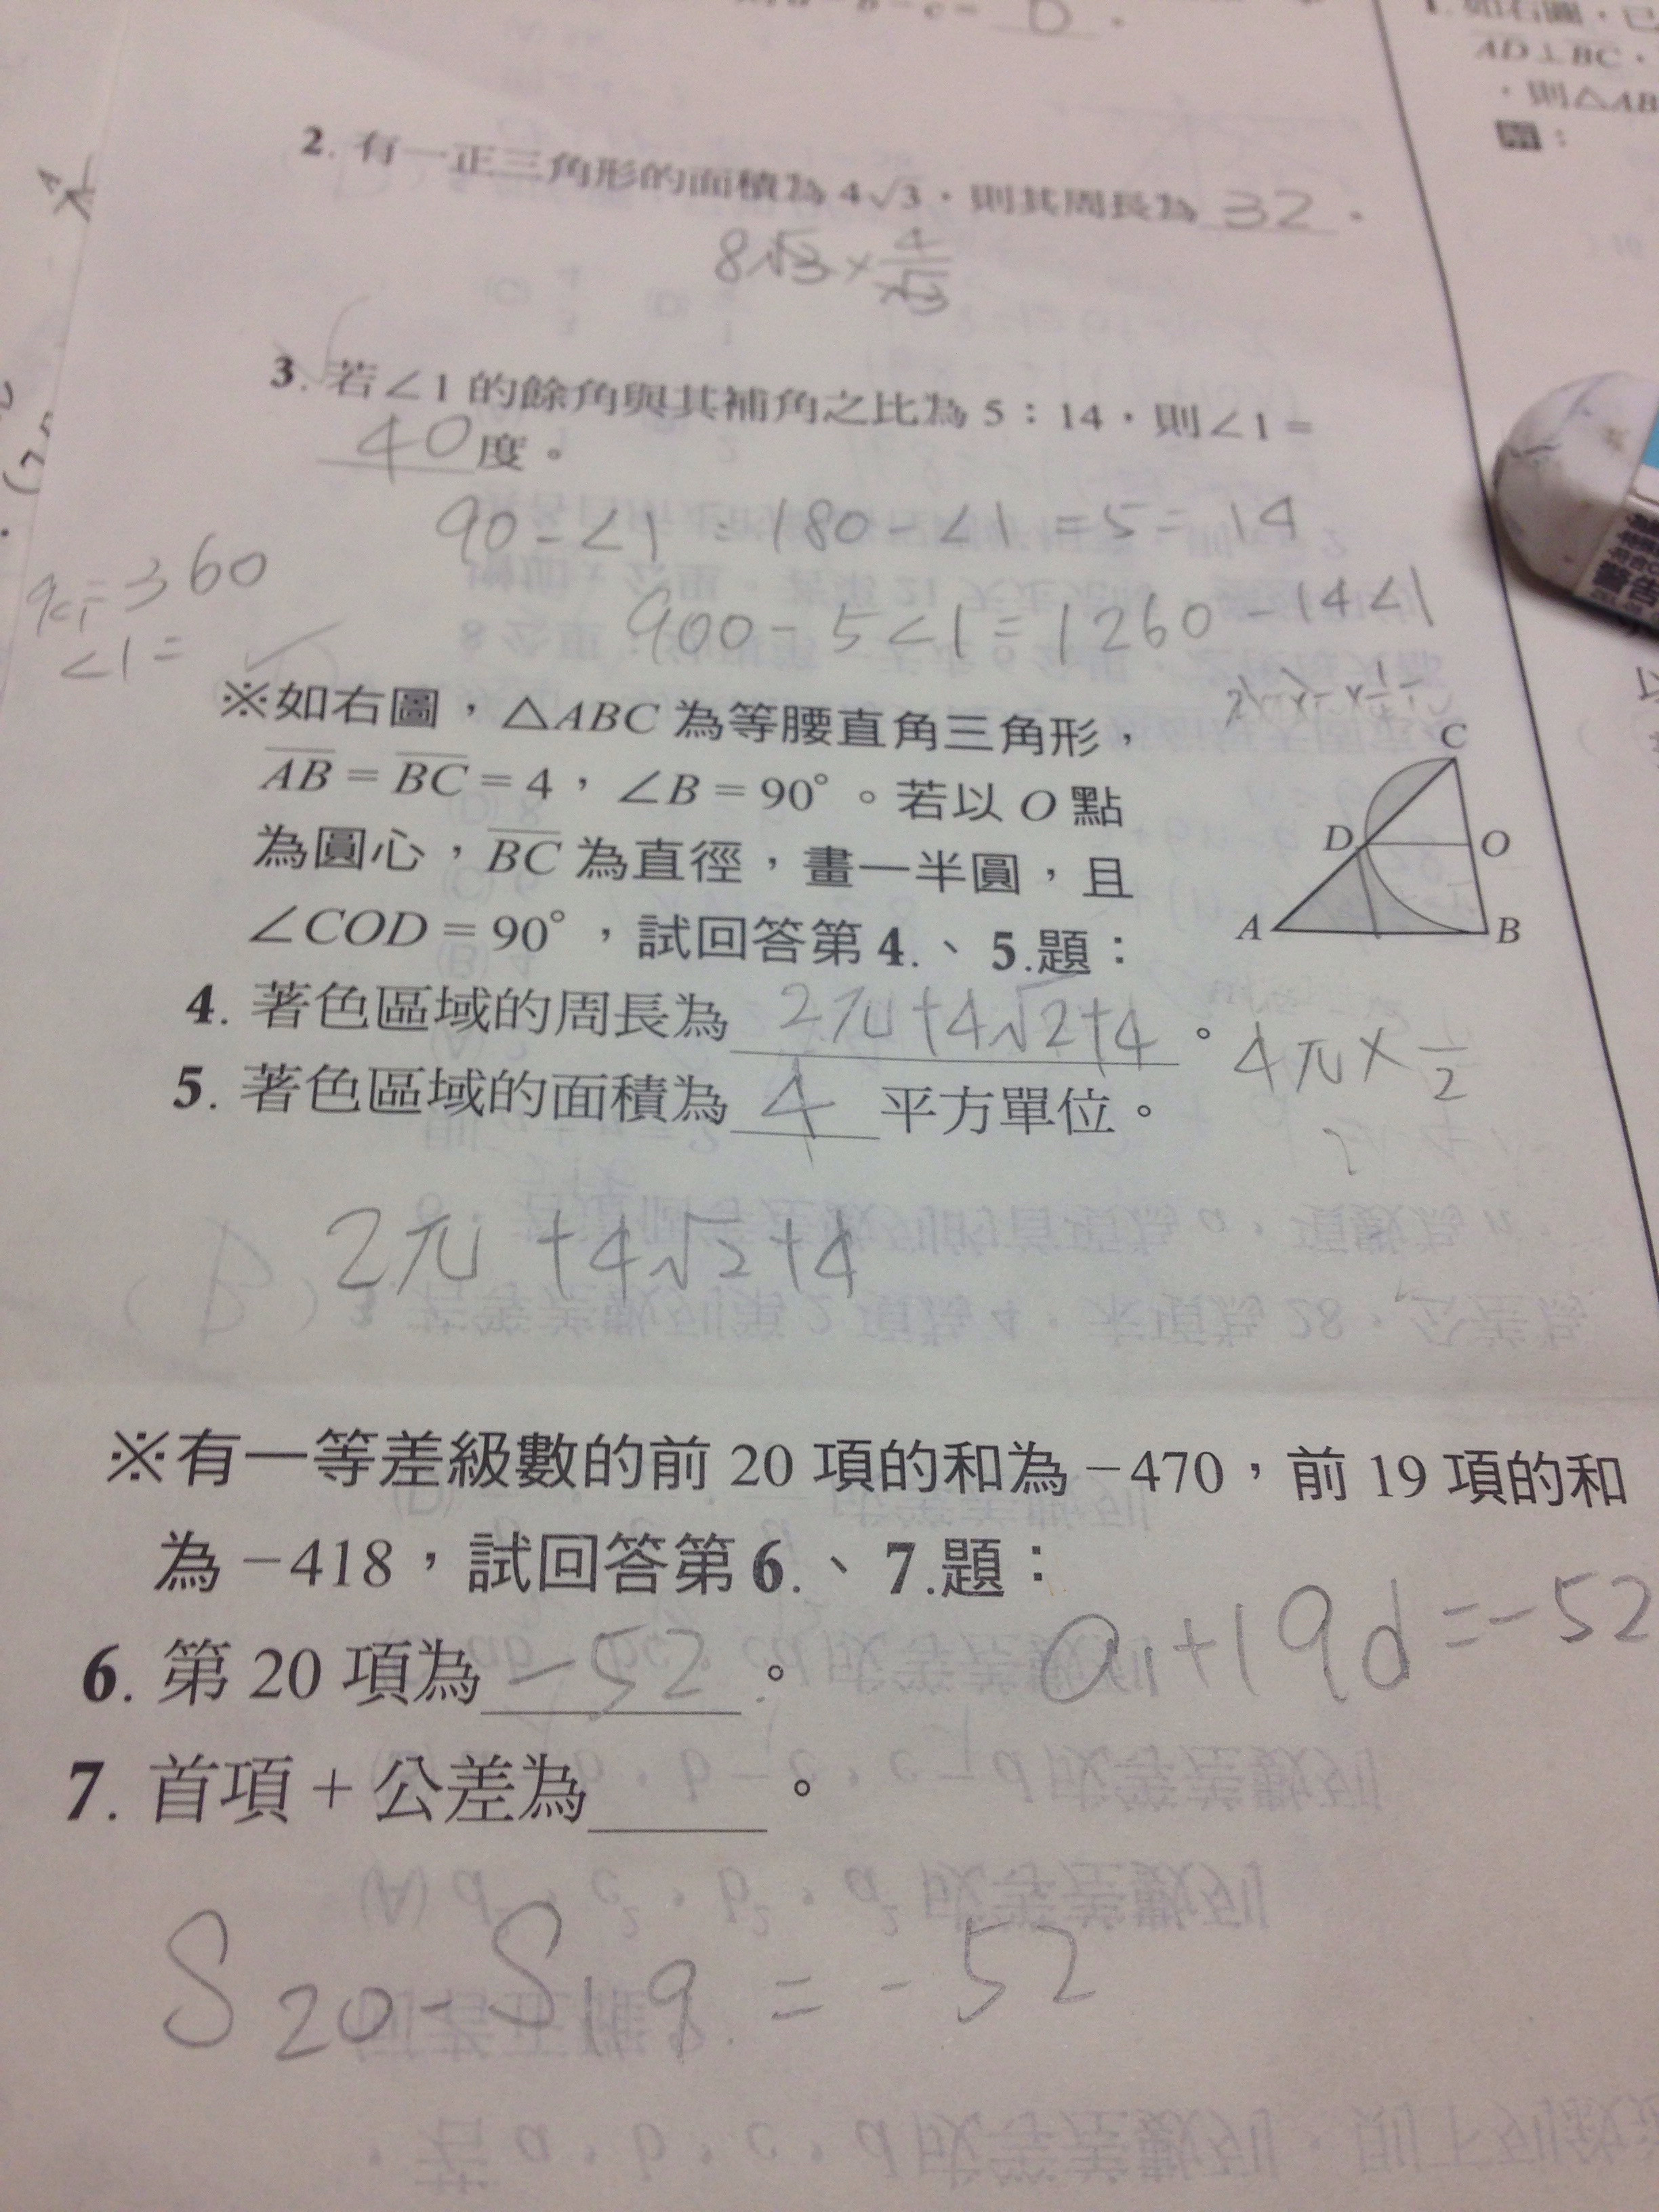 0
1.如右圖，已
AD⊥BC，
，則△AB
解：
2. 有一正三角形的面積為 4√3，則其周長為 32 。
8√3×4/√3
3. 若∠1 的餘角與其補角之比為 5：14，則∠1＝
40 度。
90-∠1：180-∠1=5=14
360
∠1=
900-5∠1=1260-14∠1
※如右圖，△ABC 為等腰直角三角形，
AB＝BC＝4，∠B＝90°。若以 O 點
為圓心，BC 為直徑，畫一半圓，且
∠COD＝90°，試回答第 4.、5.題：
C
D
O
A
B
4. 著色區域的周長為 2π+4√2+4 。
4π×1/2
5. 著色區域的面積為 4 平方單位。
2π+4√2+4
※有一等差級數的前 20 項的和為－470，前 19 項的和
為－418，試回答第 6.、7.題：
a1+19d=-52
6. 第 20 項為 -52 。
7. 首項＋公差為 。
S20-S19=-52
警告